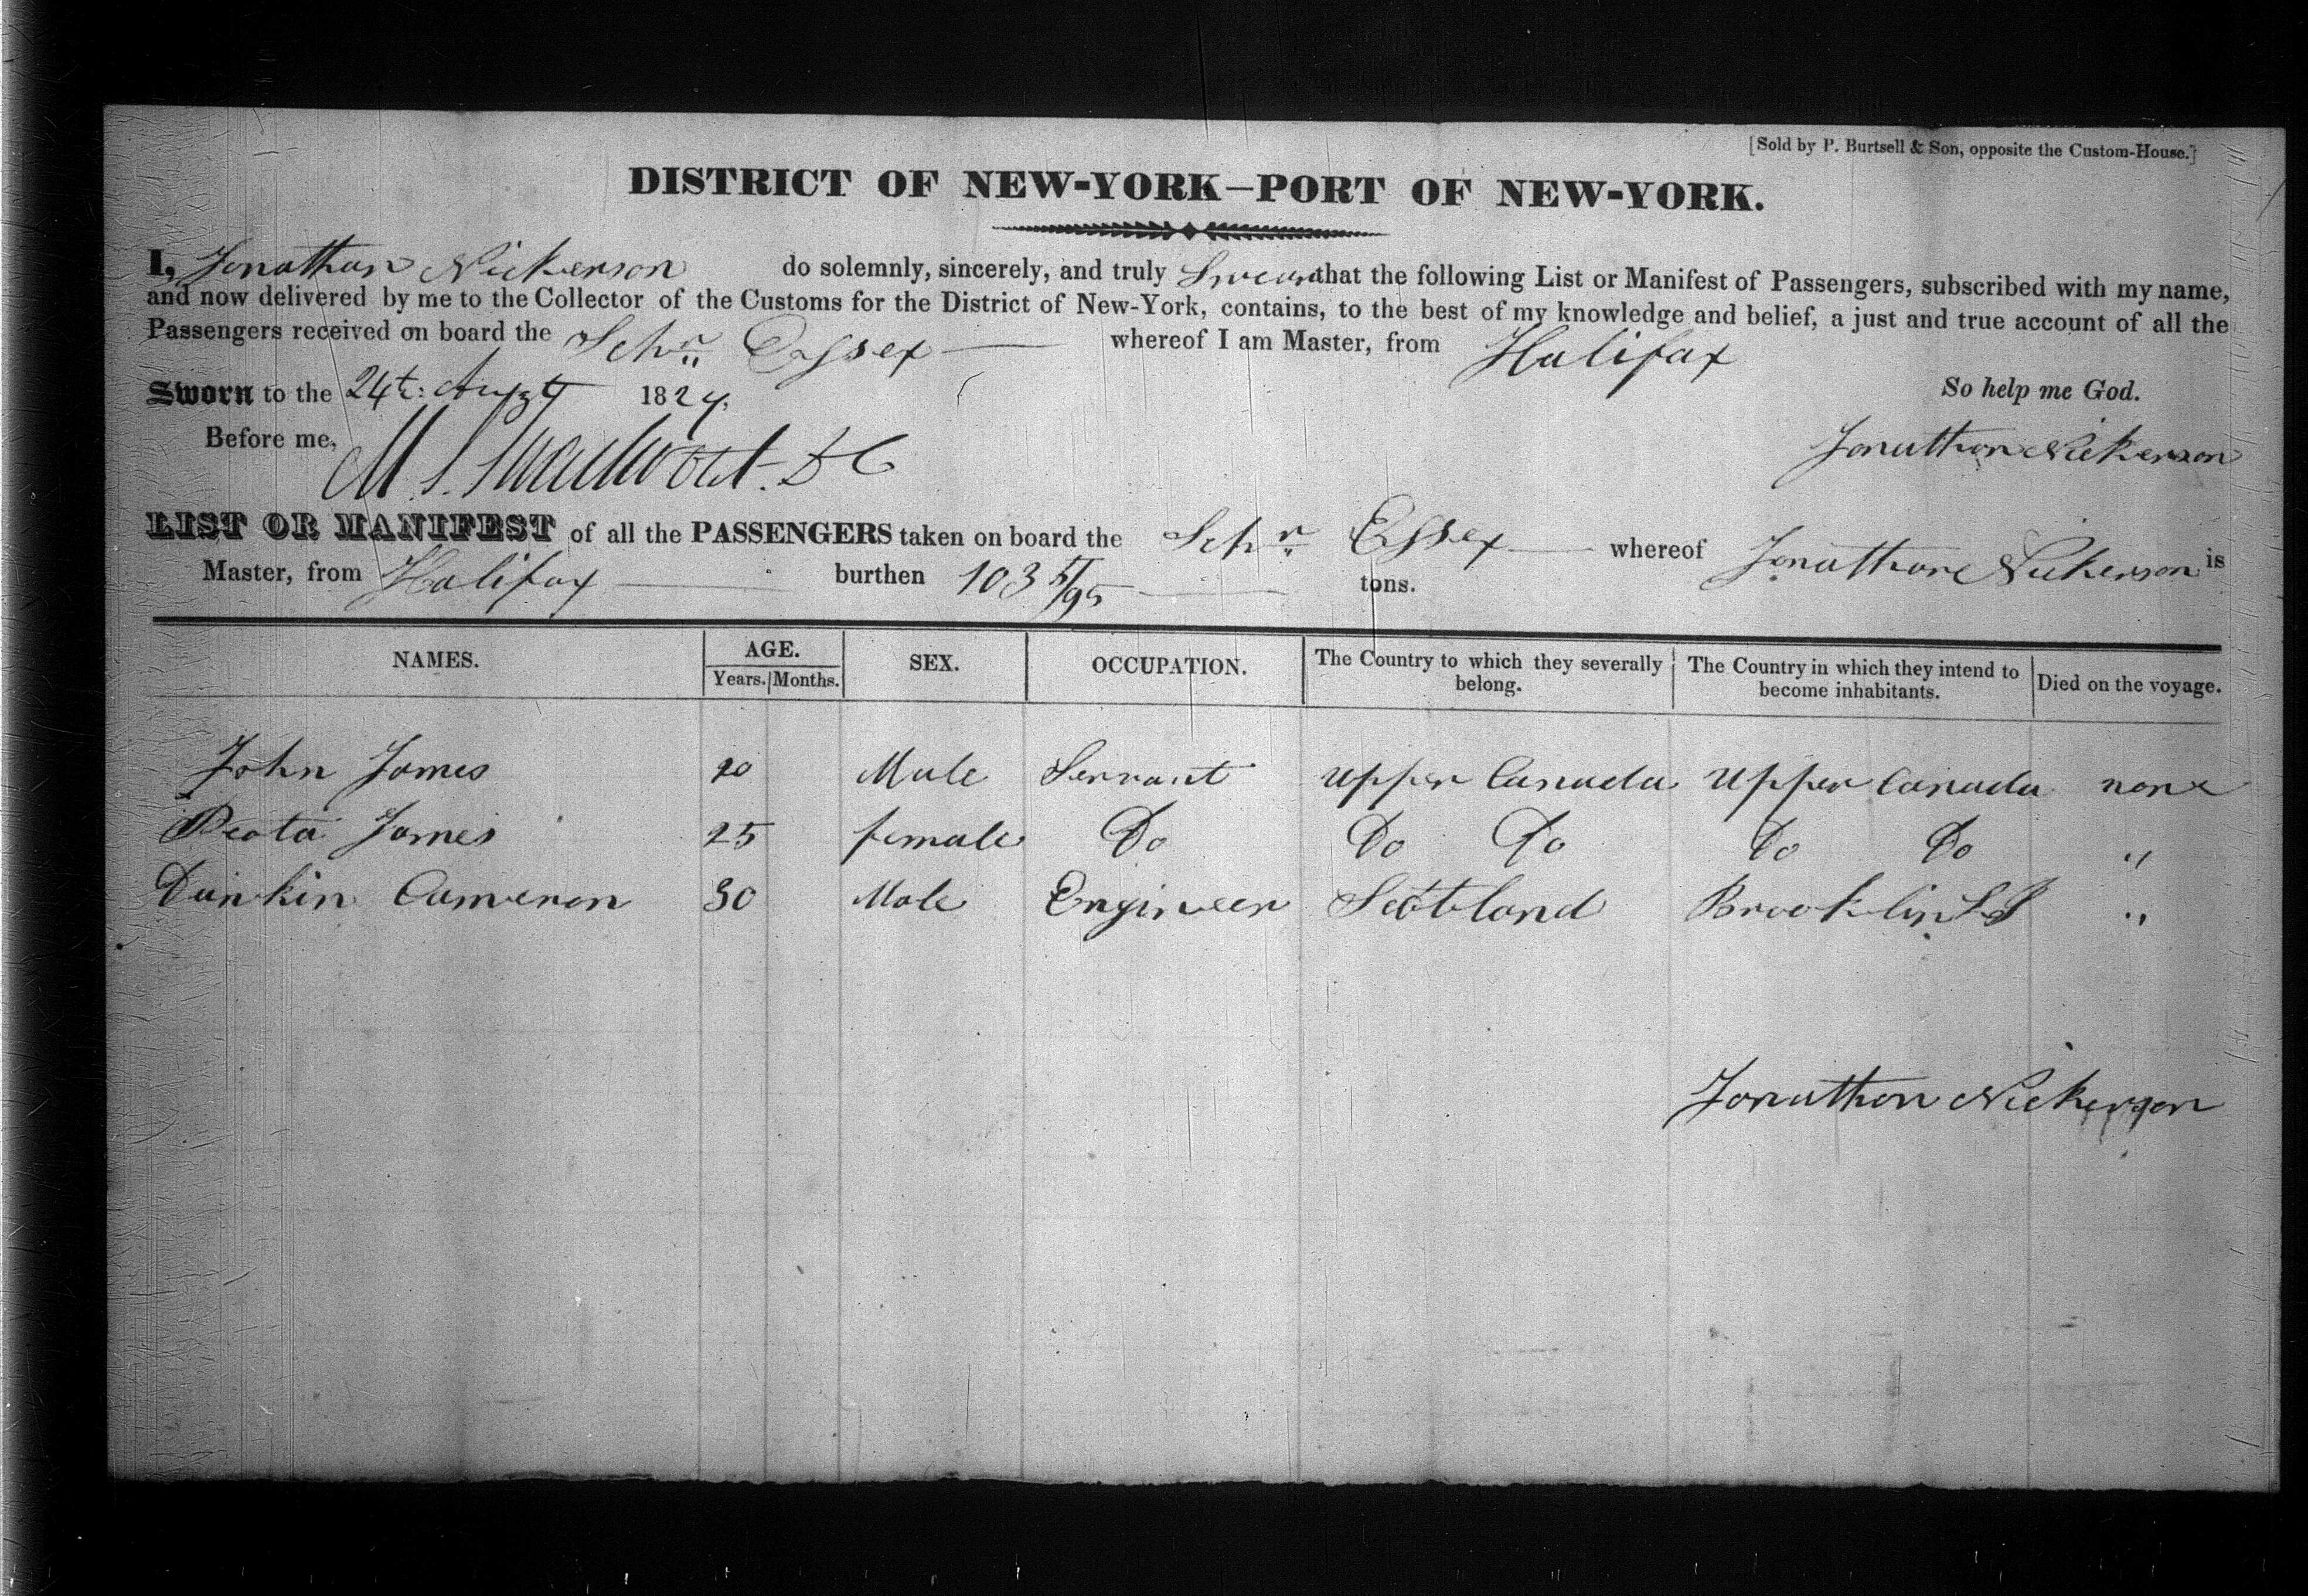 [Sold by P. Burtsell & Son, opposite the Custom-House.]
DISTRICT OF NEW-YORK—PORT OF NEW-YORK.
I, Jonathan Nickerson do solemnly, sincerely, and truly Swear that the following List or Manifest of Passengers, subscribed with my name,
and now delivered by me to the Collector of the Customs for the District of New-York, contains, to the best of my knowledge and belief, a just and true account of all the
Passengers received on board the Schr Essex whereof I am Master, from Halifax
Sworn to the 24t: Augst 1824. So help me God.
Before me, M S Swartwout. D C Jonathan Nickerson
LIST OR MANIFEST of all the PASSENGERS taken on board the Schr Essex whereof Jonathan Nickerson is
Master, from Halifax burthen 103 5/95 tons.
NAMES. AGE. SEX. OCCUPATION. The Country to which they severally belong. The Country in which they intend to become inhabitants. Died on the voyage.
Years. Months.
John James 20 Male Servant Upper Canada Upper Canada none
James 25 female Do Do Do Do Do "
Dunkin Cameron 30 Male Engineer Scotland Brooklin L I "
Jonathan Nickerson